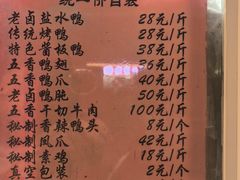 统一价自装
老卤盐水鸭 28元/斤
传统烤鸭 28元/斤
特色酱板鸭 38元/斤
五香鸭翅 36元/斤
五香鸭爪 40元/斤
老卤鸭肫 50元/斤
五香干切牛肉 100元/斤
秘制香辣鸭头 8元/个
秘制凤爪 42元/斤
秘制素鸡 18元/斤
真空包装 2元/个